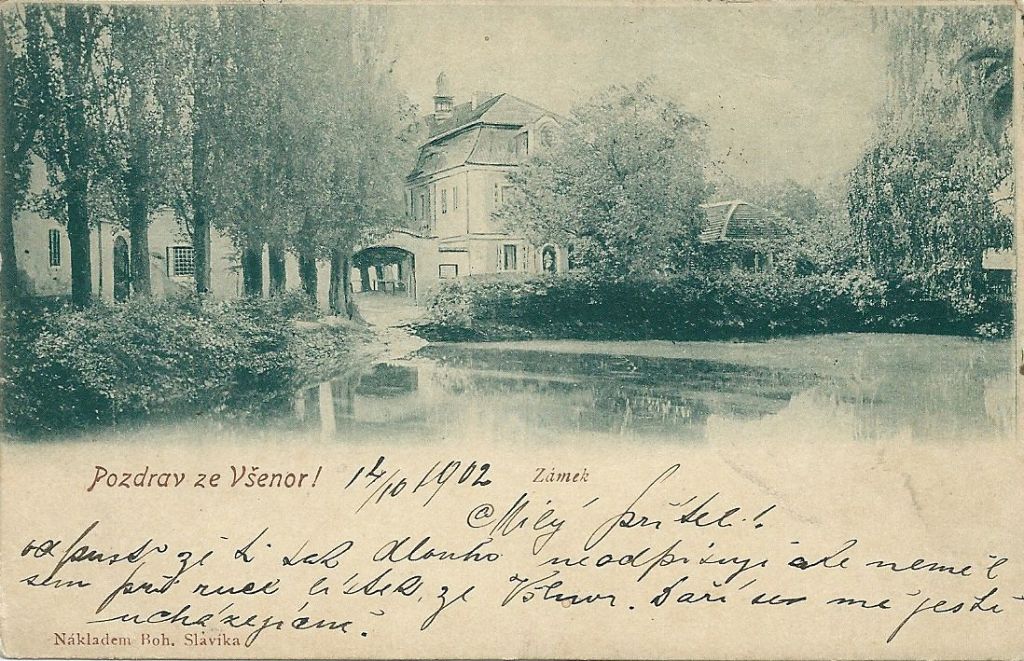 Pozdrav ze Všenor! 14/10 1902 Zámek
Milý příteli!
odpusť že ti tak dlouho neodpisuji ale neměl
sem při ruce lístek ze Všenor. Daří se mě ještě
ucházejicně.
Nákladem Boh. Slavíka